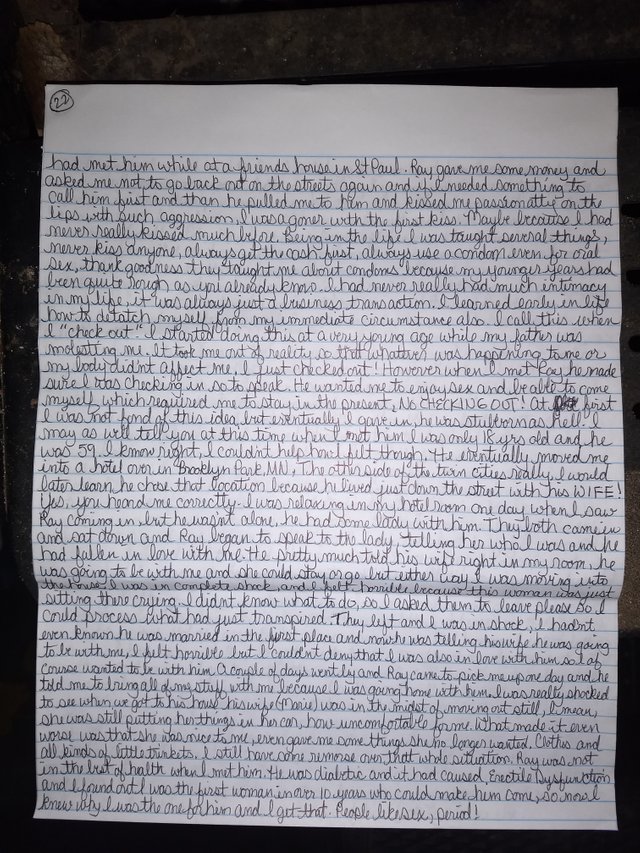 22
had met him while at a friends house in St Paul. Ray gave me some money and
asked me not to go back out on the streets again and if I needed something to
call him first and than he pulled me to him and kissed me passionatly on the
lips with such aggression. I was a goner with the first kiss. Maybe because I had
never really kissed much before. Being in the life I was taught several things,
never kiss anyone, always get the cash first, always use a condom even for oral
sex, thank goodness they taught me about condoms because my younger years had
been quite rough as you already know. I had never really had much intimacy
in my life, it was always just a business transaction. I learned early in life
how to detatch myself from my immediate circumstance also. I call this when
I "check out". I started doing this at a very young age while my father was
molesting me. It took me out of reality so that whatever was happening to me or
my body didn't affect me. I just checked out! However when I met Ray he made
sure I was checking in so to speak. He wanted me to enjoy sex and be able to come
myself which required me to stay in the present, NO CHECKING OUT! At first
I was not fond of this idea but eventually I gave in, he was stubborn as Hell! I
may as well tell you at this time when I met him I was only 18 yrs old and he
was 59. I know right, I couldn't help how I felt though. He eventually moved me
into a hotel over in Brooklyn Park, MN, The other side of the twin cities really. I would
later learn he chose that location because he lived just down the street with his WIFE!
Yes, you heard me correctly. I was relaxing in my hotel room one day when I saw
Ray coming in but he wasn't alone, he had some lady with him. They both came in
and sat down and Ray began to speak to the lady telling her who I was and he
had fallen in love with me. He pretty much told his wife right in my room he
was going to be with me and she could stay or go but either way I was moving into
the house. I was in complete shock, and I felt horrible because this woman was just
sitting there crying. I didn't know what to do, so I asked them to leave please so I
could process what had just transpired. They left and I was in shock, I hadn't
even known he was married in the first place and now he was telling his wife he was going
to be with me, I felt horrible but I couldn't deny that I was also in love with him so I of
course wanted to be with him. A couple of days went by and Ray came to pick me up one day and he
told me to bring all of my stuff with me because I was going home with him. I was really shocked
to see when we got to his house his wife (Marie) was in the midst of moving out still, I mean,
she was still putting her things in her car, how uncomfortable for me. What made it even
worse was that she was nice to me, even gave me some things she no longer wanted. Clothes and
all kinds of little trinkets. I still have some remorse over that whole situation. Ray was not
in the best of health when I met him. He was diabetic and it had caused Erectile Dysfunction
and I found out I was the first woman in over 10 years who could make him come, so now I
knew why I was the one for him and I get that. People like sex, period!